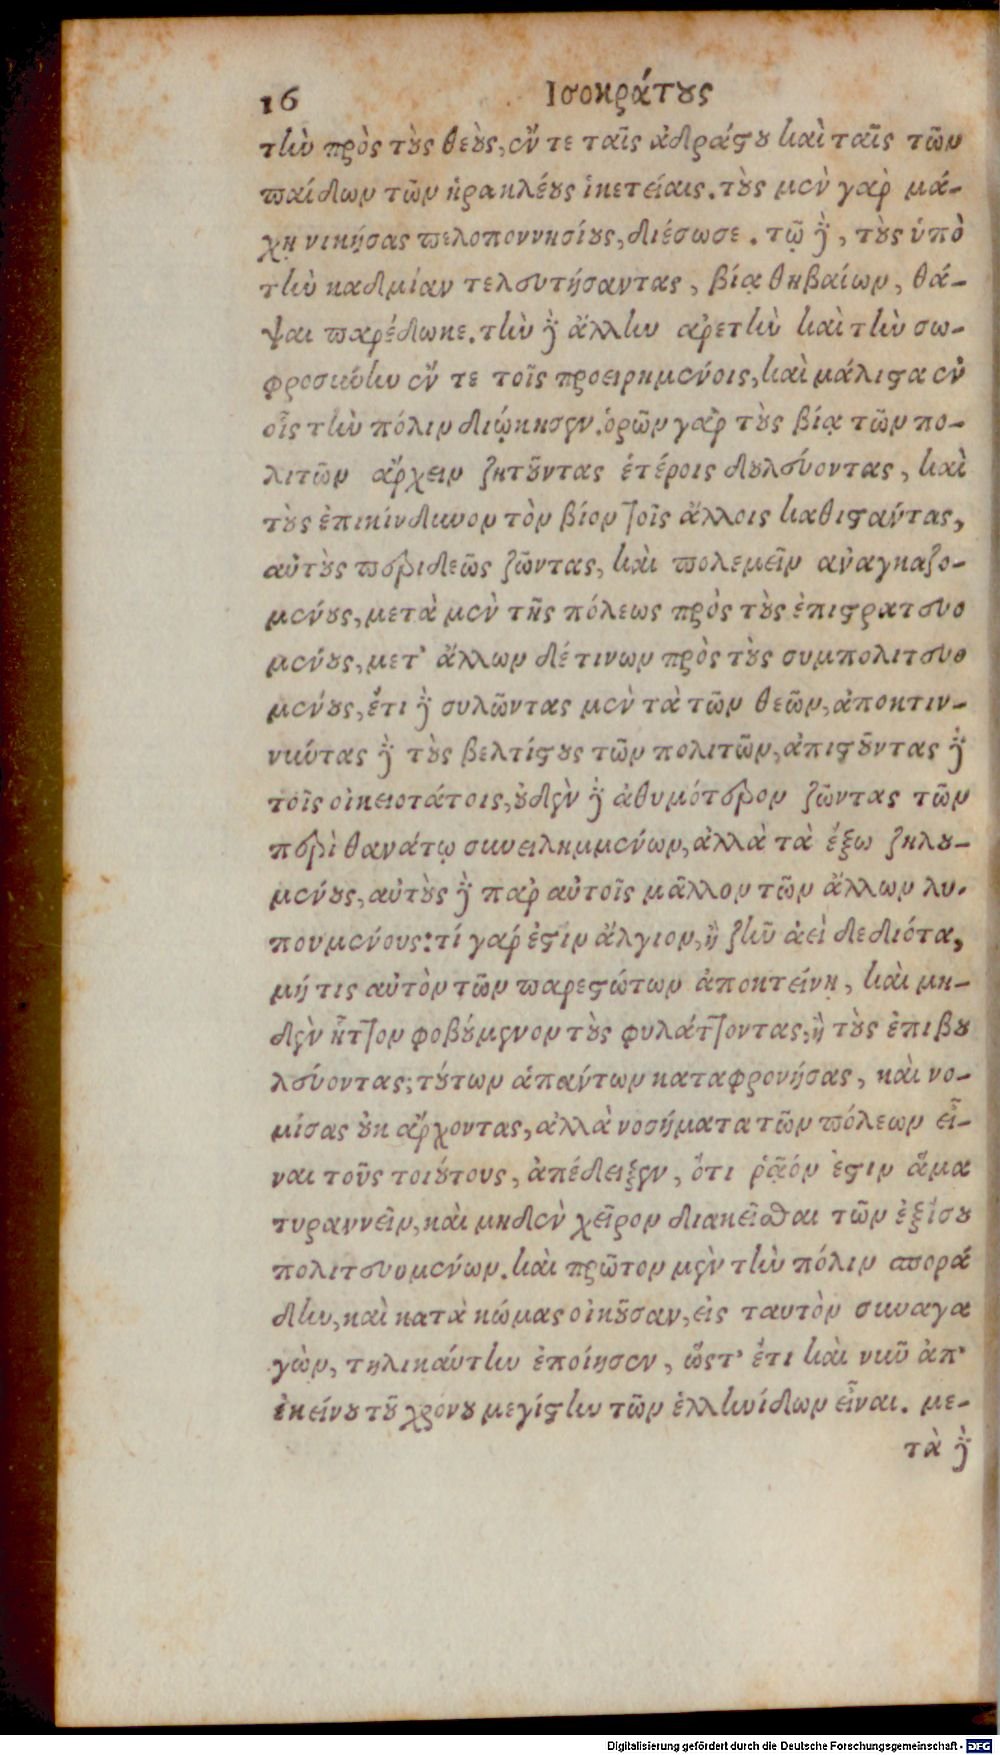 16 Ισοκράτους
τὴν πρὸς τοὺς θεοὺς, ἔν τε ταῖς ἀδράστου καὶ ταῖς τῶν
παίδων τῶν ἡρακλέους ἱκετείαις. τοὺς μὲν γὰρ μά-
χῃ νικήσας πελοποννησίους, διέσωσε. τῷ δὲ, τοὺς ὑπὸ
τὴν καδμίαν τελευτήσαντας, βίᾳ θηβαίων, θά-
ψαι παρέδωκε. τὴν δὲ ἄλλην ἀρετὴν καὶ τὴν σω-
φροσύνην ἔν τε τοῖς προειρημένοις, καὶ μάλιστα ἐν
οἷς τὴν πόλιν διῴκησεν. ὁρῶν γὰρ τοὺς βίᾳ τῶν πο-
λιτῶν ἄρχειν ζητοῦντας ἑτέροις δουλεύοντας, καὶ
τοὺς ἐπικίνδυνον τὸν βίον τοῖς ἄλλοις καθιστάντας,
αὐτοὺς περιδεῶς ζῶντας, καὶ πολεμεῖν ἀναγκαζο-
μένους, μετὰ μὲν τῆς πόλεως πρὸς τοὺς ἐπιστρατευο
μένους, μετ' ἄλλων δέ τινων πρὸς τοὺς συμπολιτευο
μένους, ἔτι δὲ συλῶντας μὲν τὰ τῶν θεῶν, ἀποκτιν-
νύντας δὲ τοὺς βελτίστους τῶν πολιτῶν, ἀπιστοῦντας δὲ
τοῖς οἰκειοτάτοις, οὐδὲν δὲ ἀθυμότερον ζῶντας τῶν
περὶ θανάτῳ συνειλημμένων, ἀλλὰ τὰ ἔξω ζηλου-
μένους, αὐτοὺς δὲ παρ αὐτοῖς μᾶλλον τῶν ἄλλων λυ-
πουμένους: τί γάρ ἐστιν ἄλγιον, ἢ ζῆν ἀεὶ δεδιότα,
μή τις αὐτὸν τῶν παρεστώτων ἀποκτείνῃ, καὶ μη-
δὲν ἧττον φοβούμενον τοὺς φυλάττοντας, ἢ τοὺς ἐπιβου
λεύοντας; τούτων ἁπάντων καταφρονήσας, καὶ νο-
μίσας οὐκ ἄρχοντας, ἀλλὰ νοσήματα τῶν πόλεων εἶ-
ναι τοῦς τοιούτους, ἀπέδειξεν, ὅτι ῥᾷόν ἐστιν ἅμα
τυραννεῖν, καὶ μηδὲν χεῖρον διακεῖσθαι τῶν ἐξίσου
πολιτευομένων. καὶ πρῶτον μὲν τὴν πόλιν σπορά
δην, καὶ κατὰ κώμας οἰκοῦσαν, εἰς ταυτὸν συναγα
γὼν, τηλικαύτην ἐποίησεν, ὥστ' ἔτι καὶ νῦν ἀπ'
ἐκείνου τοῦ χρόνου μεγίστην τῶν ἑλληνίδων εἶναι. με-
τὰ δὲ
Digitalisierung gefördert durch die Deutsche Forschungsgemeinschaft - DFG